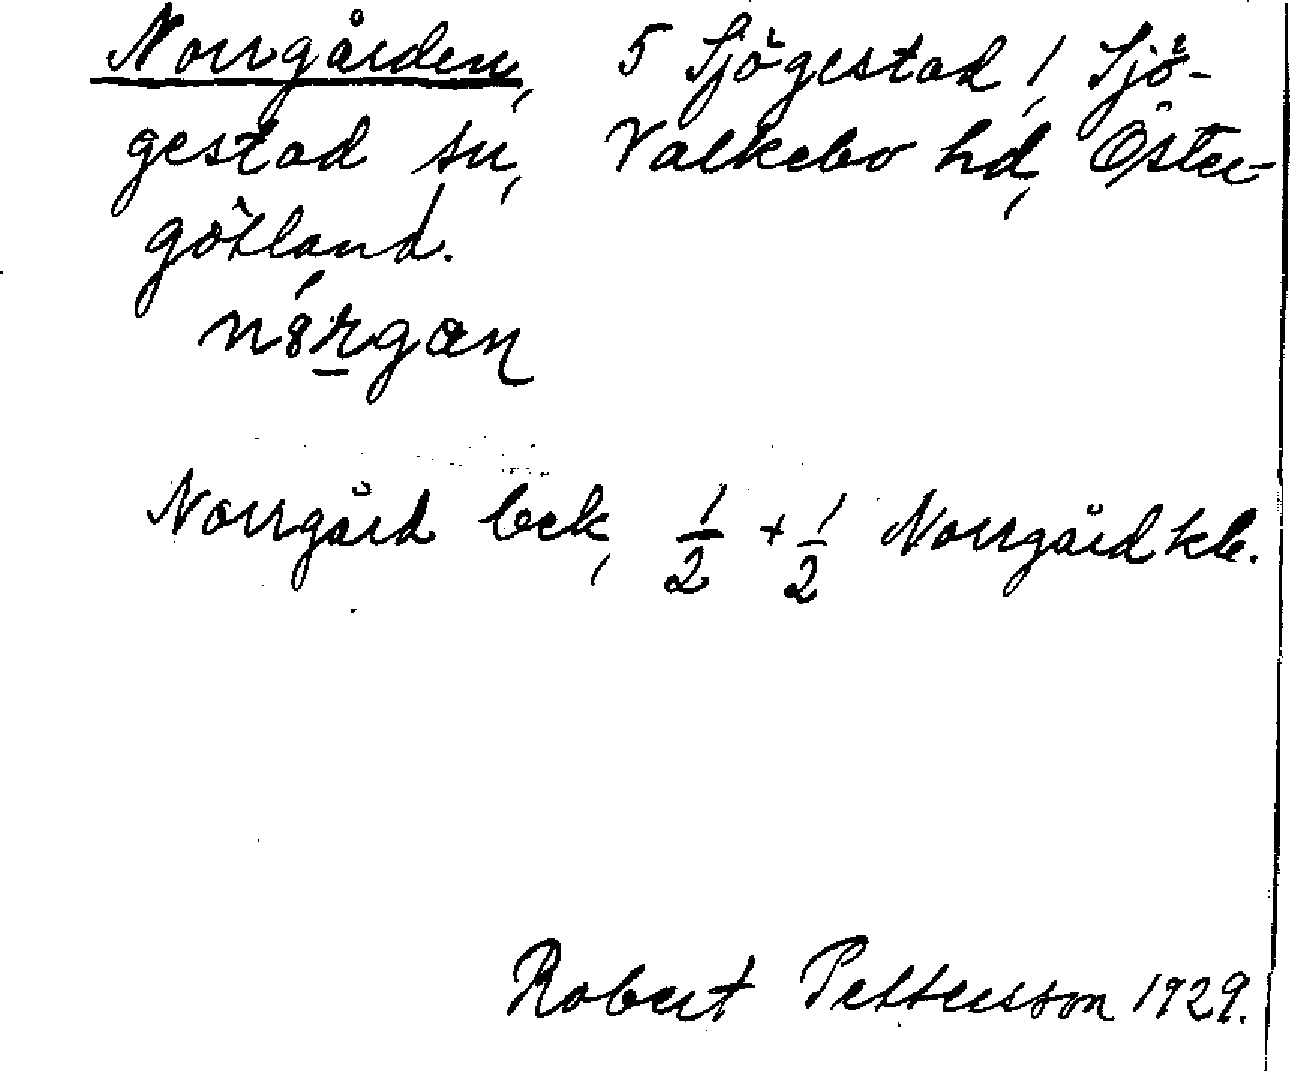 Norrgården, 5 Sjögestad, Sjö-
gestad sn, Valkebo hd, Öster-
götland.
Norrgård bek, 1/2 + 1/2 Norrgård kb.
Robert Pettersson 1929.